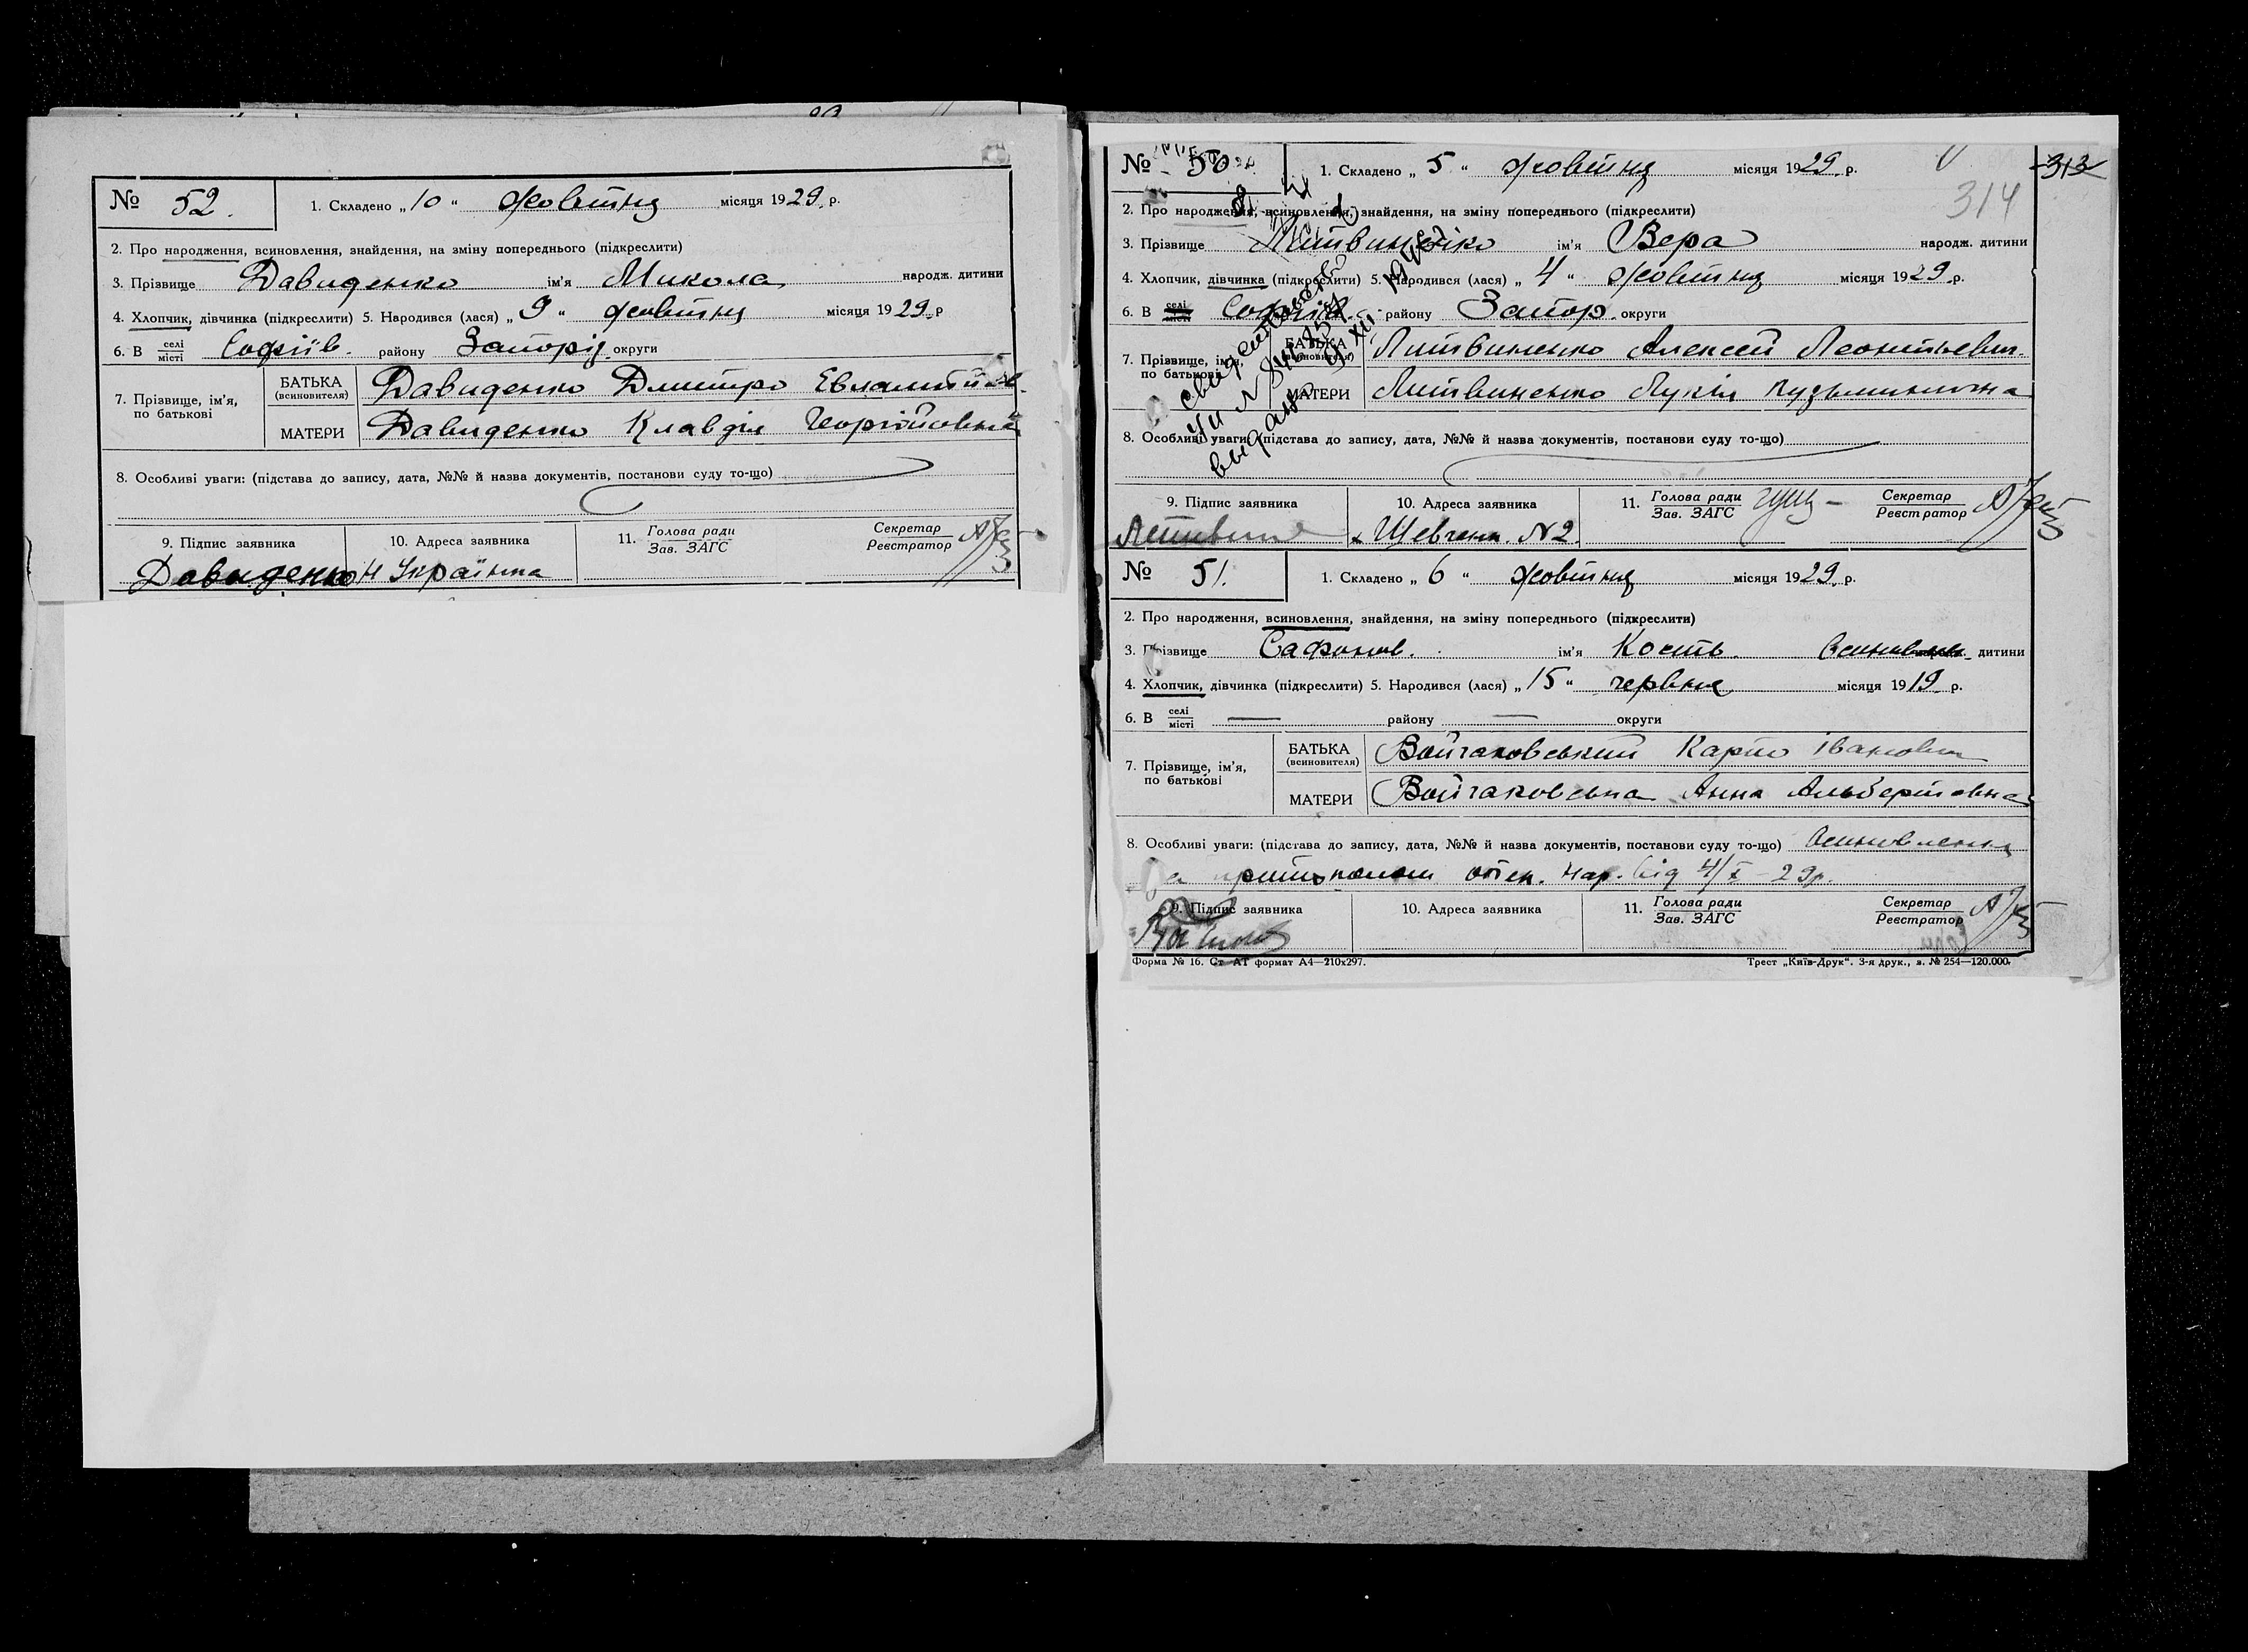 № 52. 1. Складено „10“ жовтня місяця 1929 р.
2. Про народження, всиновлення, знайдення, на зміну попереднього (підкреслити)
3. Прізвище Давиденко ім'я Микола народж. дитини
4. Хлопчик, дівчинка (підкреслити) 5. Народився (лася) „9“ жовтня місяця 1929 р
6. В селі місті Софіїв. району Запоріз. округи
7. Прізвище, ім'я, по батькові БАТЬКА (всиновителя) Давиденко Дмитро
МАТЕРИ Давиденко Клавдія Георгійовна
8. Особливі уваги: (підстава до запису, дата, №№ й назва документів, постанови суду то-що)
9. Підпис заявника 10. Адреса заявника 11. Голова ради Зав. ЗАГС Секретар Реєстратор
Давиденко Н Українка
№ 50. 1. Складено „5“ жовтня місяця 1929 р. 313
314
2. Про народження, всиновлення, знайдення, на зміну попереднього (підкреслити)
3. Прізвище Литвиненко ім'я Вера народж. дитини
4. Хлопчик, дівчинка (підкреслити) 5. Народився (лася) „4“ жовтня місяця 1929 р.
6. В селі місті Софіїв. району Запор. округи
7. Прізвище, ім'я, по батькові БАТЬКА (всиновителя) Литвиненко Алексей Леонтьевич.
МАТЕРИ Литвиненко Лукія Кузьминична
8. Особливі уваги: (підстава до запису, дата, №№ й назва документів, постанови суду то-що)
9. Підпис заявника 10. Адреса заявника 11. Голова ради Зав. ЗАГС Секретар Реєстратор
Шевченк. N2.
свидетельство
выдано
№ 51. 1. Складено „6“ жовтня місяця 1929 р.
2. Про народження, всиновлення, знайдення, на зміну попереднього (підкреслити)
3. Прізвище Сафонов. ім'я Кость. дитини
4. Хлопчик, дівчинка (підкреслити) 5. Народився (лася) „15“ червня місяця 1919 р.
6. В селі місті — району — округи
7. Прізвище, ім'я, по батькові БАТЬКА (всиновителя) Войчаковський Карпо Іванович
МАТЕРИ Войчаковська Анна Альбертовна
8. Особливі уваги: (підстава до запису, дата, №№ й назва документів, постанови суду то-що)
протоколом опік. нар. від 4/X - 29р.
9. Підпис заявника 10. Адреса заявника 11. Голова ради Зав. ЗАГС Секретар Реєстратор
Форма № 16. Ст АТ формат А4—210х297. Трест „Київ-Друк“. 3-я друк., з. № 254—120.000.